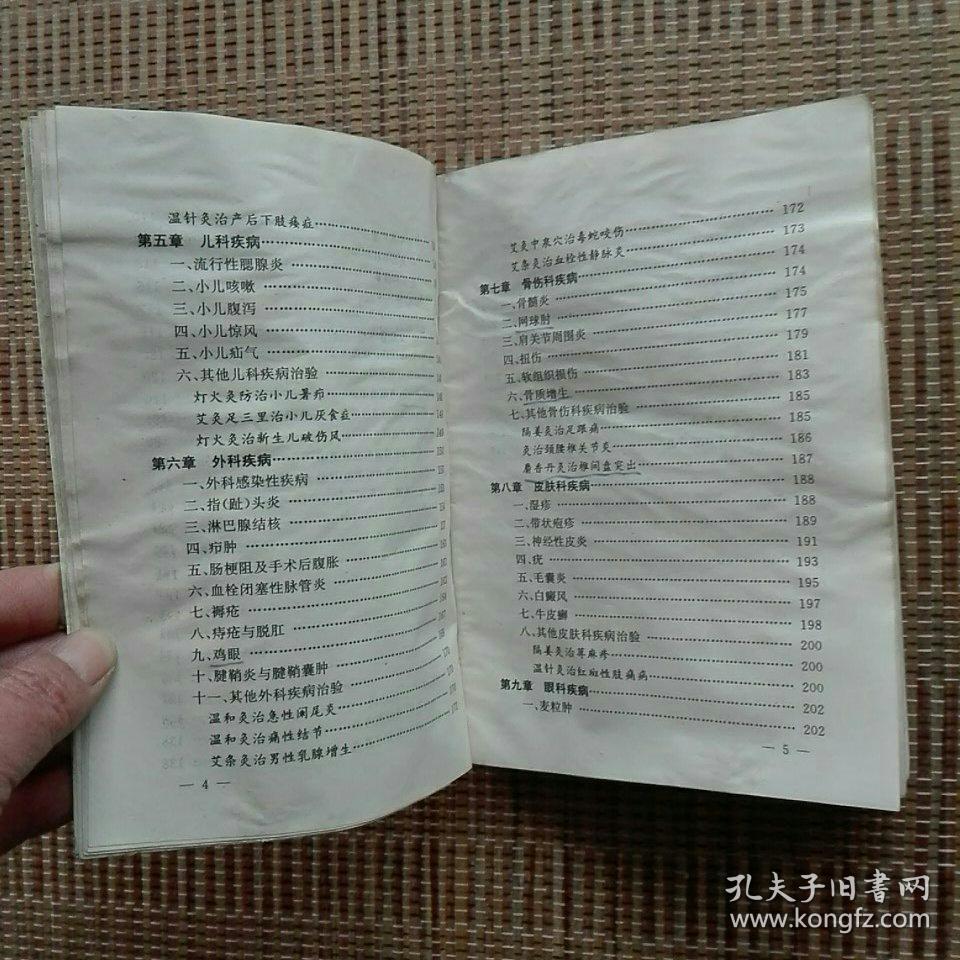 温针灸治产后下肢痿症
第五章 儿科疾病
一、流行性腮腺炎
二、小儿咳嗽
三、小儿腹泻
四、小儿惊风
五、小儿疝气
六、其他儿科疾病治验
灯火灸防治小儿暑疖
艾灸足三里治小儿厌食症
灯火灸治新生儿破伤风
第六章 外科疾病
一、外科感染性疾病
二、指(趾)头炎
三、淋巴腺结核
四、疖肿
五、肠梗阻及手术后腹胀
六、血栓闭塞性脉管炎
七、褥疮
八、痔疮与脱肛
九、鸡眼
十、腱鞘炎与腱鞘囊肿
十一、其他外科疾病治验
温和灸治急性阑尾炎
温和灸治痛性结节
艾条灸治男性乳腺增生
— 4 —
艾灸中泉穴治毒蛇咬伤 172
艾条灸治血栓性静脉炎 173
第七章 骨伤科疾病 174
一、骨髓炎 174
二、网球肘 175
三、肩关节周围炎 177
四、扭伤 179
五、软组织损伤 181
六、骨质增生 183
七、其他骨伤科疾病治验 185
隔姜灸治足跟痛 185
灸治颈腰椎关节炎 186
麝香丹灸治椎间盘突出 187
第八章 皮肤科疾病 188
一、湿疹 188
二、带状疱疹 189
三、神经性皮炎 191
四、疣 193
五、毛囊炎 195
六、白癜风 197
七、牛皮癣 198
八、其他皮肤科疾病治验 200
隔姜灸治荨麻疹 200
温针灸治红斑性肢痛病 200
第九章 眼科疾病 202
一、麦粒肿 202
— 5 —
孔夫子旧書网
www.kongfz.com